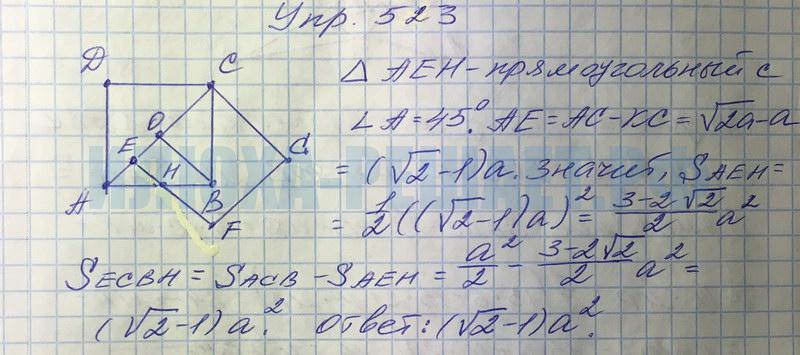 Упр. 523
D C
O
E H G
A B
F
△ AEH - прямоугольный с
∠A = 45°. AE = AC - KC = √2a - a
= (√2 - 1)a. Значит, SAEH =
= 1/2((√2 - 1)a)² = (3 - 2√2)/2 a²
SECBH = SACB - SAEH = a²/2 - (3 - 2√2)/2 a² =
(√2 - 1)a². Ответ: (√2 - 1)a².